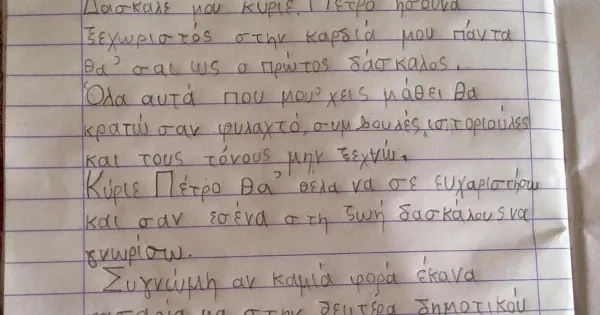 Δάσκαλέ μου κύριε Πέτρο ήσουνα
ξεχωριστός στην καρδιά μου πάντα
θα 'σαι ως ο πρώτος δάσκαλος.
Όλα αυτά που μου 'χεις μάθει θα
κρατώ σαν φυλαχτό, συμβουλές, ιστοριούλες
και τους τόνους μην ξεχνώ.
Κύριε Πέτρο θα 'θελα να σε ευχαριστήσω
και σαν εσένα στη ζωή δασκάλους να
γνωρίσω.
Συγνώμη αν καμιά φορά έκανα
στην δευτέρα δημοτικού